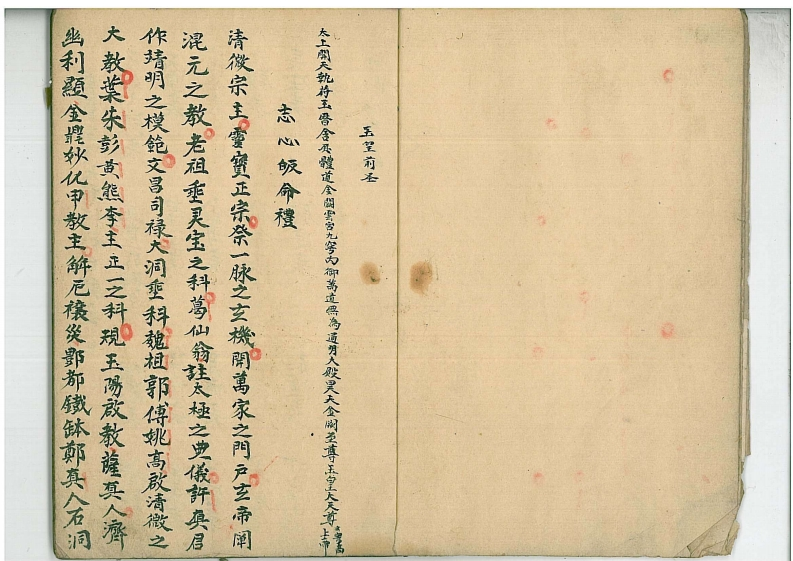 玉皇前
太上開天執符玉曆含真體道金闕雲宮九穹內御萬道無為通明大殿昊天金闕至尊玉皇大天尊玄穹高上帝
志心皈命禮
清微宗主靈寶正宗祭一脉之玄機開萬家之門户玄帝闡
混元之教老祖垂灵宝之科葛仙翁註太極之典儀許真君
作靖明之模範文昌司禄大洞垂科魏祖郭傅姚高啟清微之
大教葉朱彭黄熊李主正一之科現玉陽啟教薩真人濟
幽利顯金妙化申教主解厄禳災酆都鐵缽鄭真人石洞